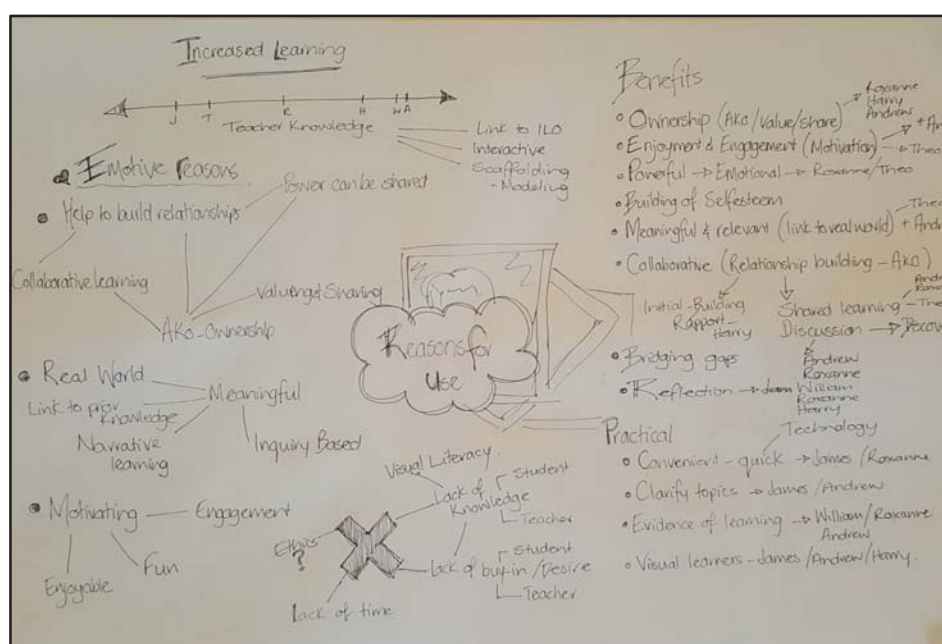 Increased Learning
J T R H W A
Teacher Knowledge
Link to ILO
Interactive
Scaffolding
- Modeling
Emotive reasons
Help to build relationships
Power can be shared
Collaborative learning
Valuing & Sharing
AKO - Ownership
Real World
Link to prior
Knowledge
Meaningful
Narrative
learning
Inquiry Based
Motivating
Engagement
Enjoyable
Fun
Reasons for
Use
Visual Literacy
Lack of
Knowledge
Student
Teacher
Ethics
?
Lack of buy-in / Desire
Student
Teacher
Lack of time
Benefits
Roxanne
Harry
Andrew
Ownership (AKO/value/share)
+ An
Enjoyment & Engagement (Motivation) Theo
Powerful → Emotional → Roxanne/Theo
Building of Selfesteem
Theo
Meaningful & relevant (link to real world) + Andr
Collaborative (Relationship building - AKO)
Initial - Building
Rapport -
Harry
Shared learning - Theo
Discussion → Discov
Bridging gaps
Andrew
Roxanne
Reflection → William
Roxanne
Harry
Practical
Technology
Convenient - quick → James / Roxanne
Clarify topics → James / Andrew
Evidence of learning → William / Roxanne
Andrew
Visual learners - James / Andrew / Harry.